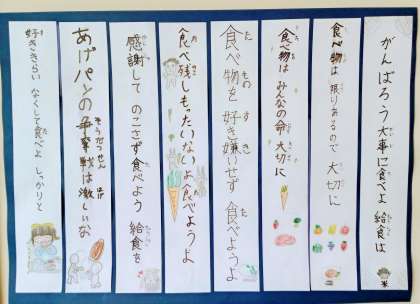 がんばろう 大事に食べよ 給食は
食べ物は 限りあるので 大切に
食べ物は みんなの命 大切に
食べ物を 好き嫌いせず 食べようよ
食べ残しもったいないよ食べようよ
感謝して のこさず食べよう 給食を
あげパンの争奪戦は激しいな
好ききらい なくして食べよ しっかりと